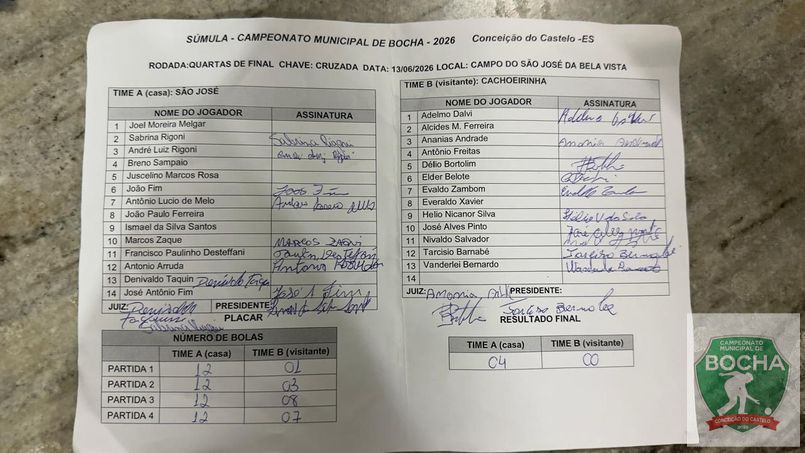 SÚMULA - CAMPEONATO MUNICIPAL DE BOCHA - 2026 Conceição do Castelo -ES
RODADA:QUARTAS DE FINAL CHAVE: CRUZADA DATA: 13/06/2026 LOCAL: CAMPO DO SÃO JOSÉ DA BELA VISTA
TIME A (casa): SÃO JOSÉ
NOME DO JOGADOR ASSINATURA
1 Joel Moreira Melgar
2 Sabrina Rigoni Sabrina Rigoni
3 André Luiz Rigoni
4 Breno Sampaio
5 Juscelino Marcos Rosa
6 João Fim João Fim
7 Antônio Lucio de Melo
8 João Paulo Ferreira
9 Ismael da Silva Santos
10 Marcos Zaque MARCOS ZAQUI
11 Francisco Paulinho Desteffani
12 Antonio Arruda Antonio
13 Denivaldo Taquin Denivaldo
14 José Antônio Fim José A Fim
JUIZ: Denivaldo PRESIDENTE:
Sabrina Rigoni
PLACAR
NÚMERO DE BOLAS
TIME A (casa) TIME B (visitante)
PARTIDA 1 12 01
PARTIDA 2 12 03
PARTIDA 3 12 08
PARTIDA 4 12 07
TIME B (visitante): CACHOEIRINHA
NOME DO JOGADOR ASSINATURA
1 Adelmo Dalvi Adelmo
2 Alcides M. Ferreira
3 Ananias Andrade
4 Antônio Freitas
5 Délio Bortolim
6 Elder Belote
7 Evaldo Zambom Evaldo
8 Everaldo Xavier
9 Helio Nicanor Silva
10 José Alves Pinto
11 Nivaldo Salvador
12 Tarcisio Barnabé Tarcizio Bernabé
13 Vanderlei Bernardo
14
JUIZ: PRESIDENTE:
RESULTADO FINAL
TIME A (casa) TIME B (visitante)
04 00
CAMPEONATO
MUNICIPAL DE
BOCHA
CONCEIÇÃO DO CASTELO
2026